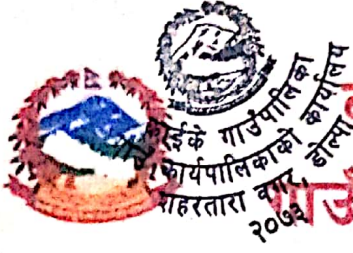 काईके गाउँपालिका
गाउँ कार्यपालिकाको कार्यालय
शहरतारा वगर, डोल्पा
२०७३
गाउँ